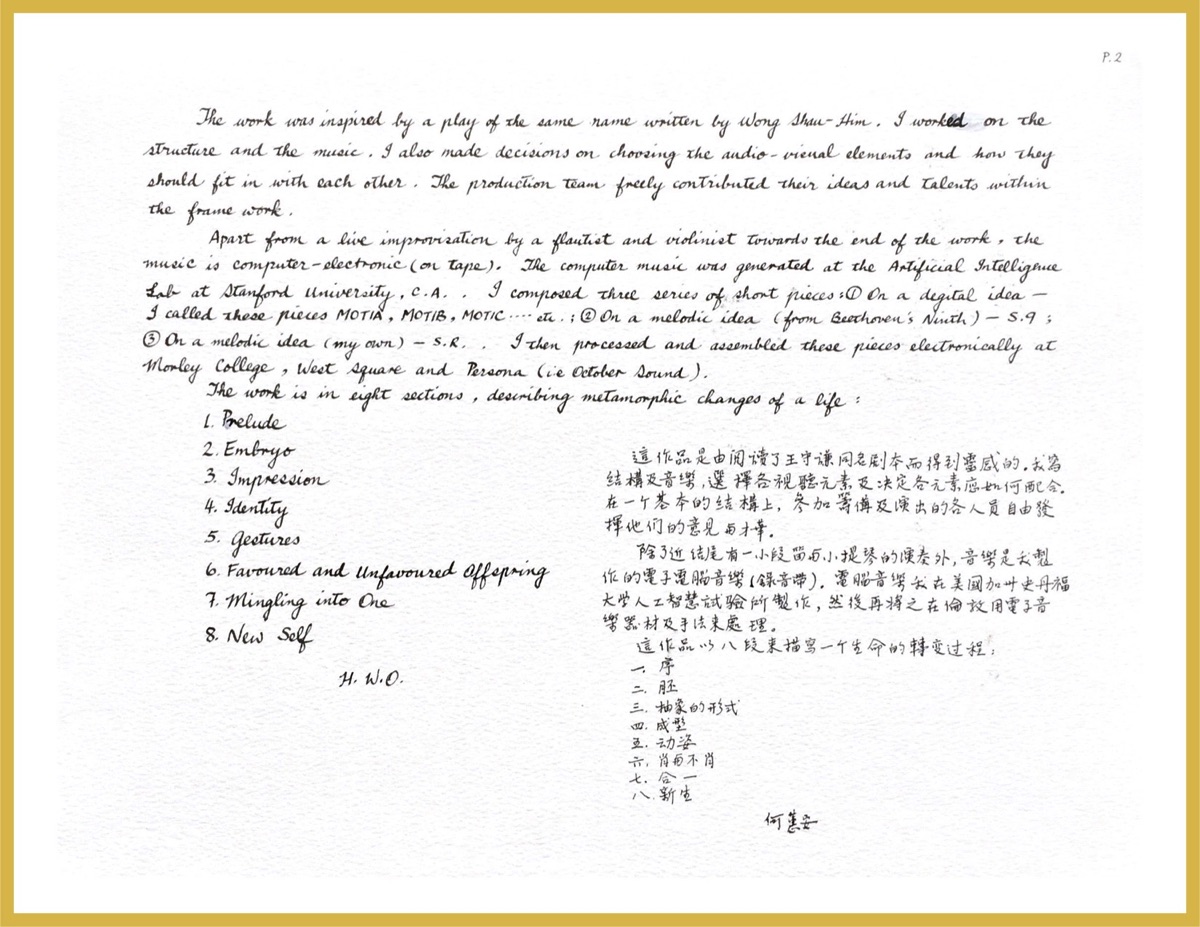 P.2
The work was inspired by a play of the same name written by Wong Shau-Him. I worked on the
structure and the music. I also made decisions on choosing the audio-visual elements and how they
should fit in with each other. The production team freely contributed their ideas and talents within
the frame work.
Apart from a live improvisation by a flautist and violinist towards the end of the work, the
music is computer-electronic (on tape). The computer music was generated at the Artificial Intelligence
Lab at Stanford University, C.A.. I composed three series of short pieces: ① On a degital idea —
I called these pieces MOTIA, MOTIB, MOTIC ···· etc.; ② On a melodic idea (from Beethoven's Ninth) — S.9;
③ On a melodic idea (my own) — S.R.. I then processed and assembled these pieces electronically at
Morley College, West Square and Persona (i.e October Sound).
The work is in eight sections, describing metamorphic changes of a life:
1. Prelude
2. Embryo
3. Impression
4. Identity
5. Gestures
6. Favoured and Unfavoured Offspring
7. Mingling into One
8. New Self
H. W.O.
這作品是由阅讀了王守謙同名剧本而得到靈感的. 我寫
结構及音樂, 選擇各視聽元素及决定各元素应如何配合.
在一个基本的结構上, 參加籌備及演出的各人員自由發
揮他们的意見与才華.
除了近结尾有一小段笛与小提琴的演奏外, 音樂是我製
作的電子電腦音樂(錄音带). 電腦音樂我在美國加卅史丹福
大学人工智慧試驗所製作, 然後再将之在倫敦用電子音
樂器材及手法來處理.
這作品以八段来描写一个生命的轉变过程:
一. 序
二. 胚
三. 抽象的形式
四. 成型
五. 动姿
六. 肖与不肖
七. 合一
八. 新生
何蕙安